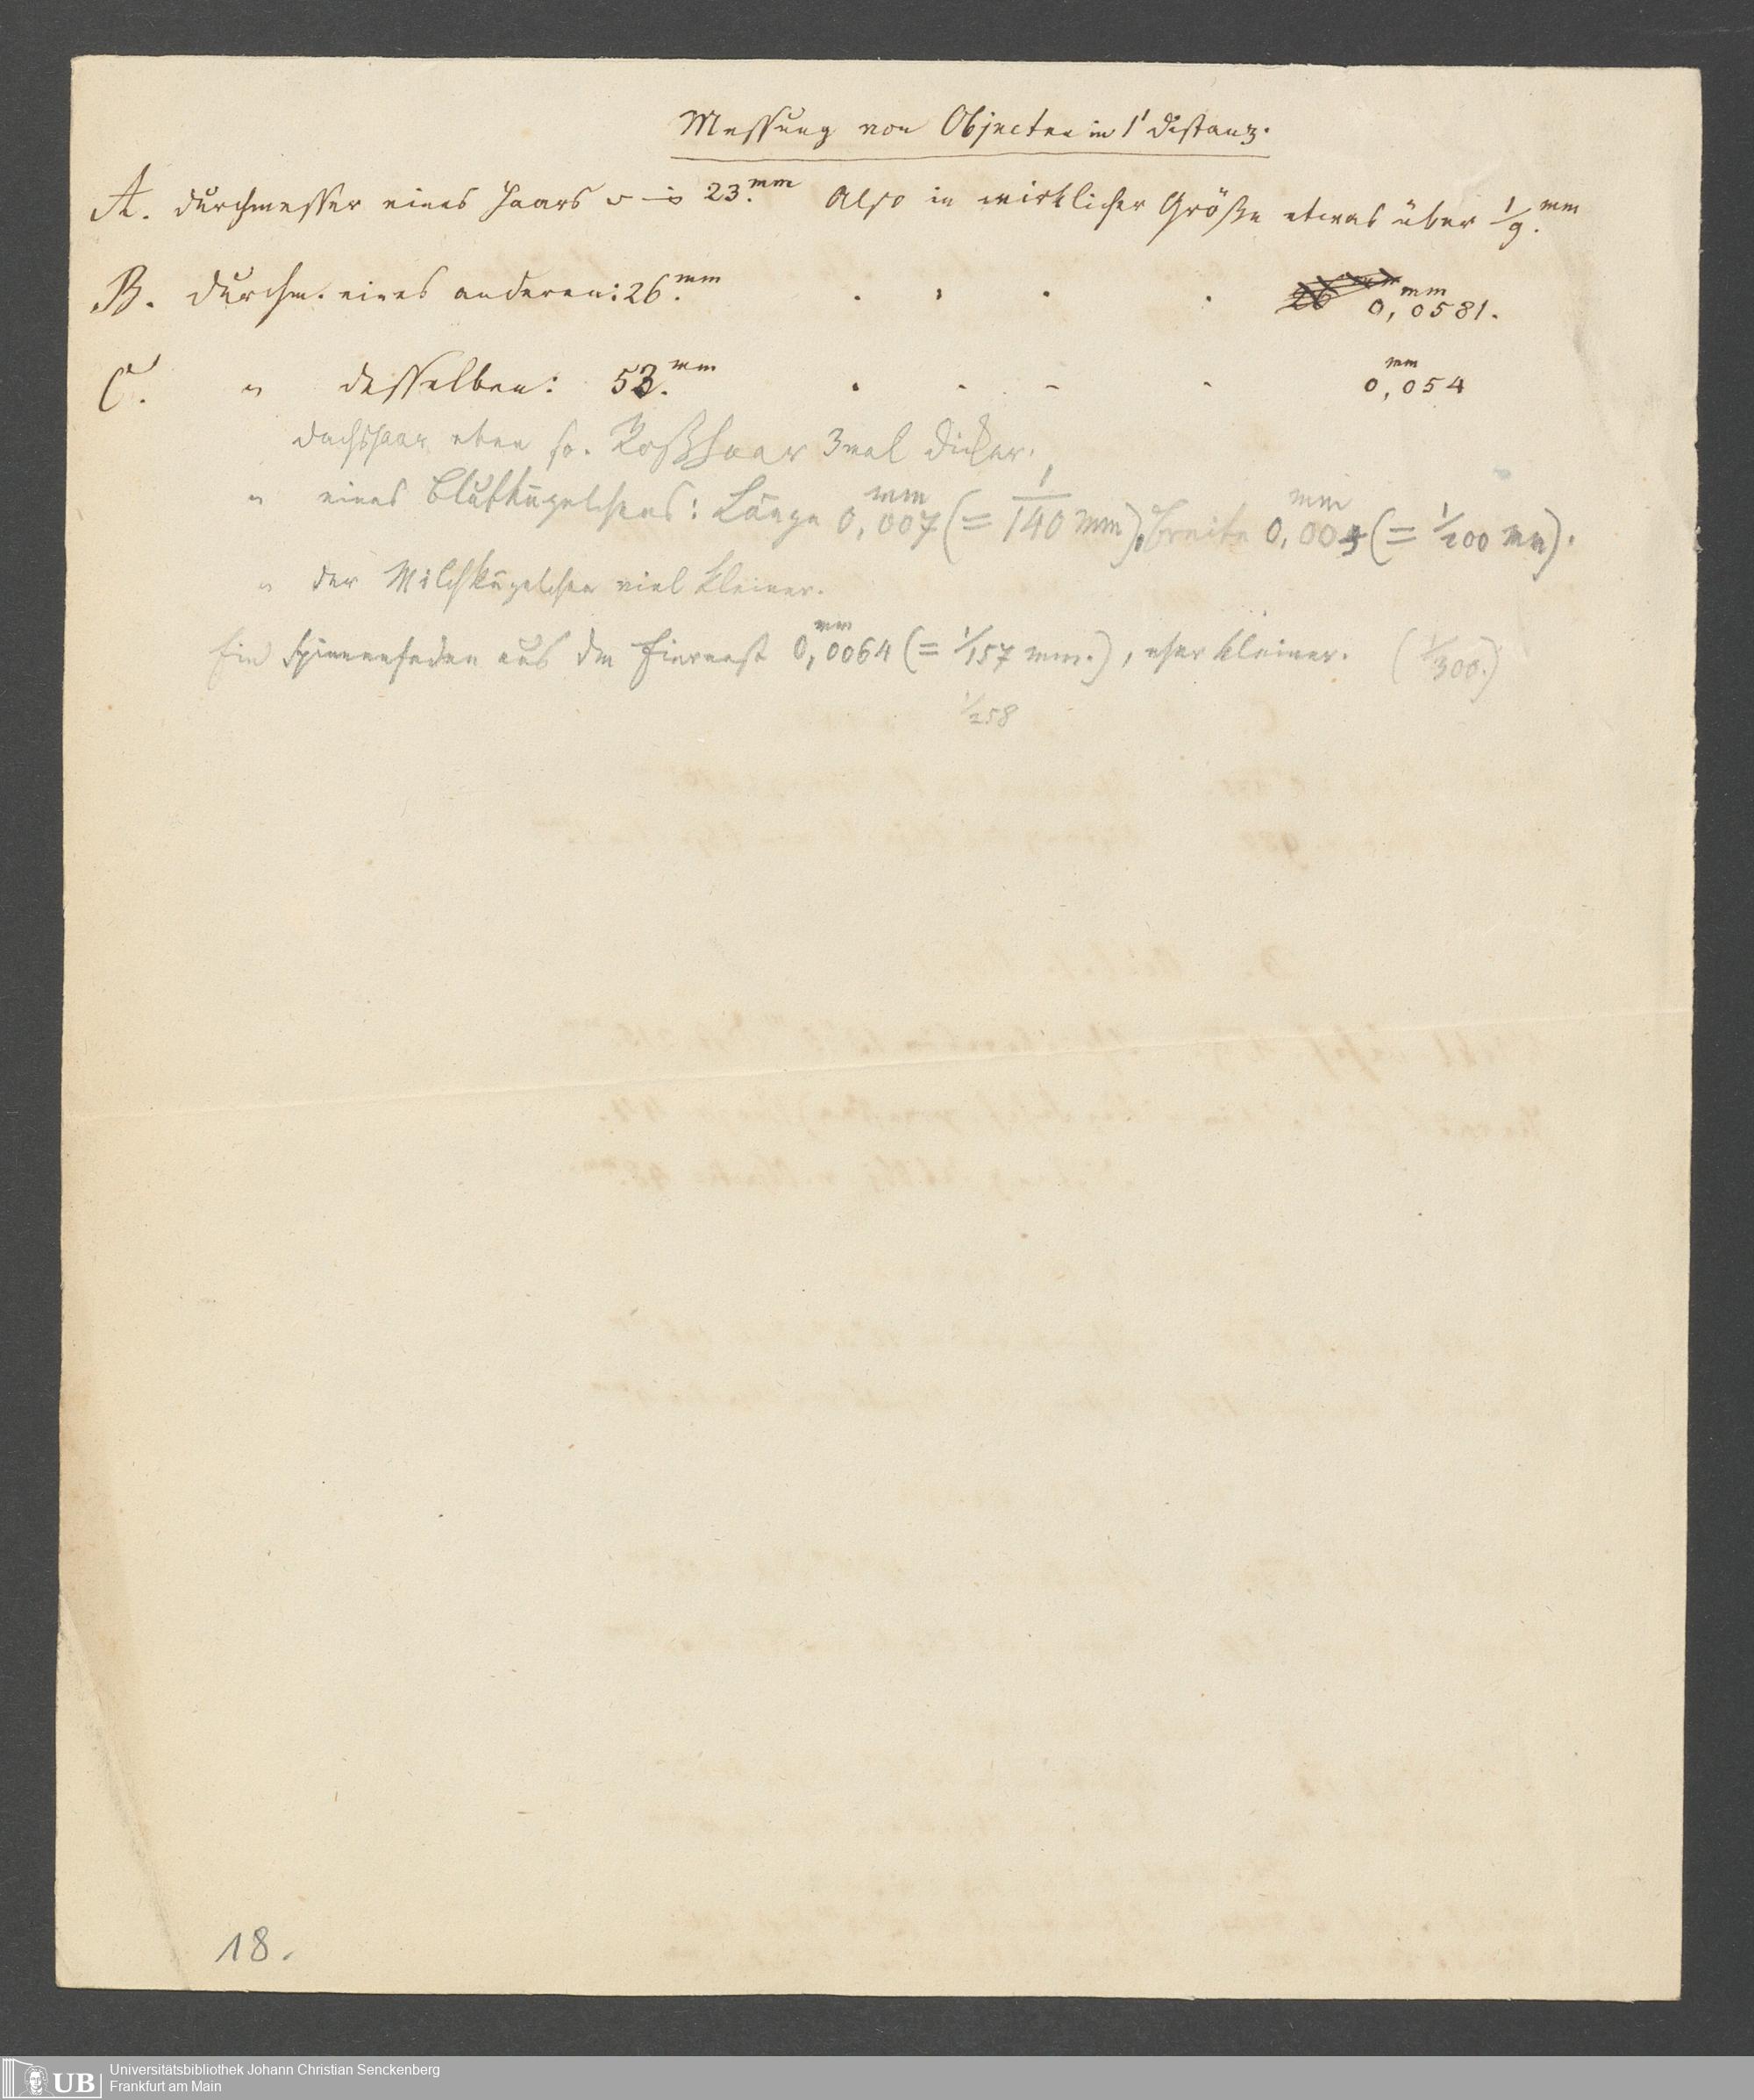 Messung von Objecten in 1' Distanz.
A. Durchmesser eines Haars 23.mm Also in wirklicher Größe etwas über 1/9.mm
B. Durchm. eines anderen: 26.mm . . . . 0,0581.mm
C. " desselben: 53.mm . . . . 0,054mm
Dachshaar eben so. Roßhaar 3mal dicker.
" eines Blutkügelchens: Länge 0,007mm (= 1/140 mm), Breite 0,005mm (= 1/200 mm).
" der Milchkügelchen viel kleiner.
Ein Spinnenfaden aus dem Eiernest 0,0064mm (= 1/157 mm.), eher kleiner. (1/300.)
1/258
18.
UB
Universitätsbibliothek Johann Christian Senckenberg
Frankfurt am Main